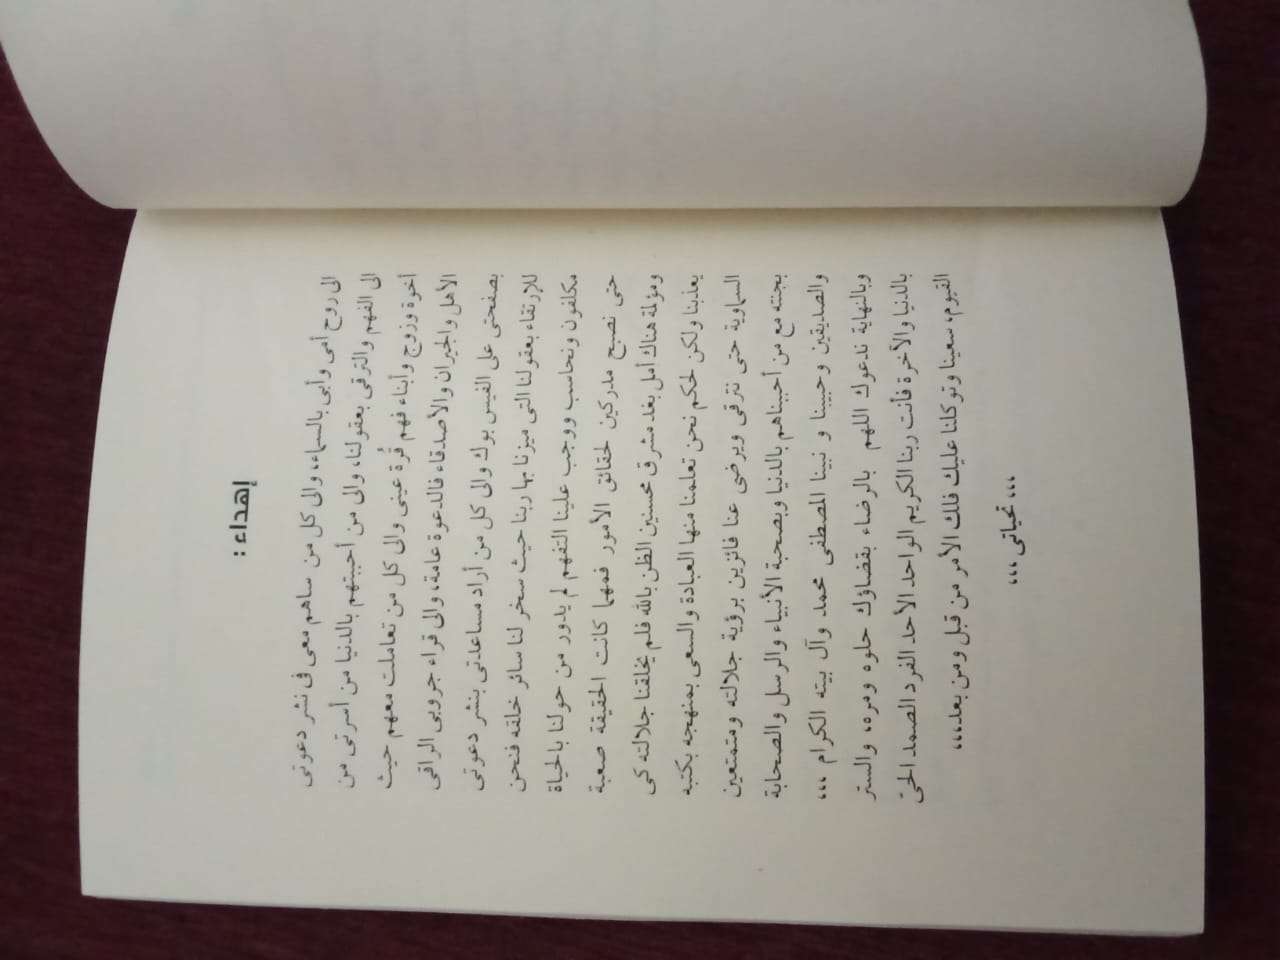 إهداء :
الى روح أمى وأبى بالسماء، والى كل من ساهم معى فى نشر دعوتى
الى الفهم والترقى بعقولنا، والى من أحببتهم بالدنيا من أسرتى من
أخوة وزوج وأبناء فهم قُرة عينى والى كل من تعاملت معهم حيث
الأهل والجيران والأصدقاء فالدعوة عامة، والى قراء جروبى الراقى
بصفحتى على الفيس بوك والى كل من أراد مساعدتى بنشر دعوتى
للإرتقاء بعقولنا التى ميزنا بها ربنا حيث سخر لنا سائر خلقه فنحن
مكلفون ونحاسب ووجب علينا التفهم لم يدور من حولنا بالحياة
حتى نصبح مدركين لحقائق الأمور فمهما كانت الحقيقة صعبة
ومؤلمة هناك أمل بغد مشرق محسنين الظن بالله فلم يخلقنا جلالته كى
يعذبنا ولكن لحكم نحن تعلمنا منها العبادة والسعى بمنهجه بكتبه
السماوية حتى نترقى ويرضى عنا فائزين برؤية جلالته ومتمتعين
بجنته مع من أحببناهم بالدنيا وبصحبة الأنبياء والرسل والصحابة
والصديقين وحبيبنا و نبينا المصطفى محمد وآل بيته الكرام ،،،
وبالنهاية ندعوك اللهم بالرضاء بقضاؤك حلوه ومره، والستر
بالدنيا والآخرة فأنت ربنا الكريم الواحد الأحد الفرد الصمد الحىّ
القيوم، سعينا وتوكلنا عليك فلك الأمر من قبل ومن بعد،،،
،،، تحياتى ،،،